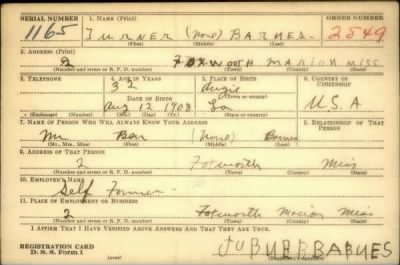 SERIAL NUMBER 1. NAME (Print) ORDER NUMBER
1165 (None) BARNES 2549
(First) (Middle) (Last)
2. ADDRESS (Print)
2 FOXWORTH MARION MISS
(Number and street or R. F. D. number) (Town) (County) (State)
3. TELEPHONE 4. AGE IN YEARS 5. PLACE OF BIRTH 6. COUNTRY OF CITIZENSHIP
32 Angie
DATE OF BIRTH (Town or county)
Aug 12 1908 La U.S.A
(Exchange) (Number) (Mo.) (Day) (Yr.) (State or country)
7. NAME OF PERSON WHO WILL ALWAYS KNOW YOUR ADDRESS RELATIONSHIP OF THAT PERSON
Mr (None) Barnes
(Mr., Mrs., Miss) (First) (Middle) (Last)
ADDRESS OF THAT PERSON
2 Foxworth Miss
(Number and street or R. F. D. number) (Town) (County) (State)
10. EMPLOYER'S NAME
Self Farmer
11. PLACE OF EMPLOYMENT OR BUSINESS
2 Foxworth Marion Miss
(Number and street or R. F. D. number) (Town) (County) (State)
I AFFIRM THAT I HAVE VERIFIED ABOVE ANSWERS AND THAT THEY ARE TRUE.
REGISTRATION CARD
D. S. S. Form 1 (over)